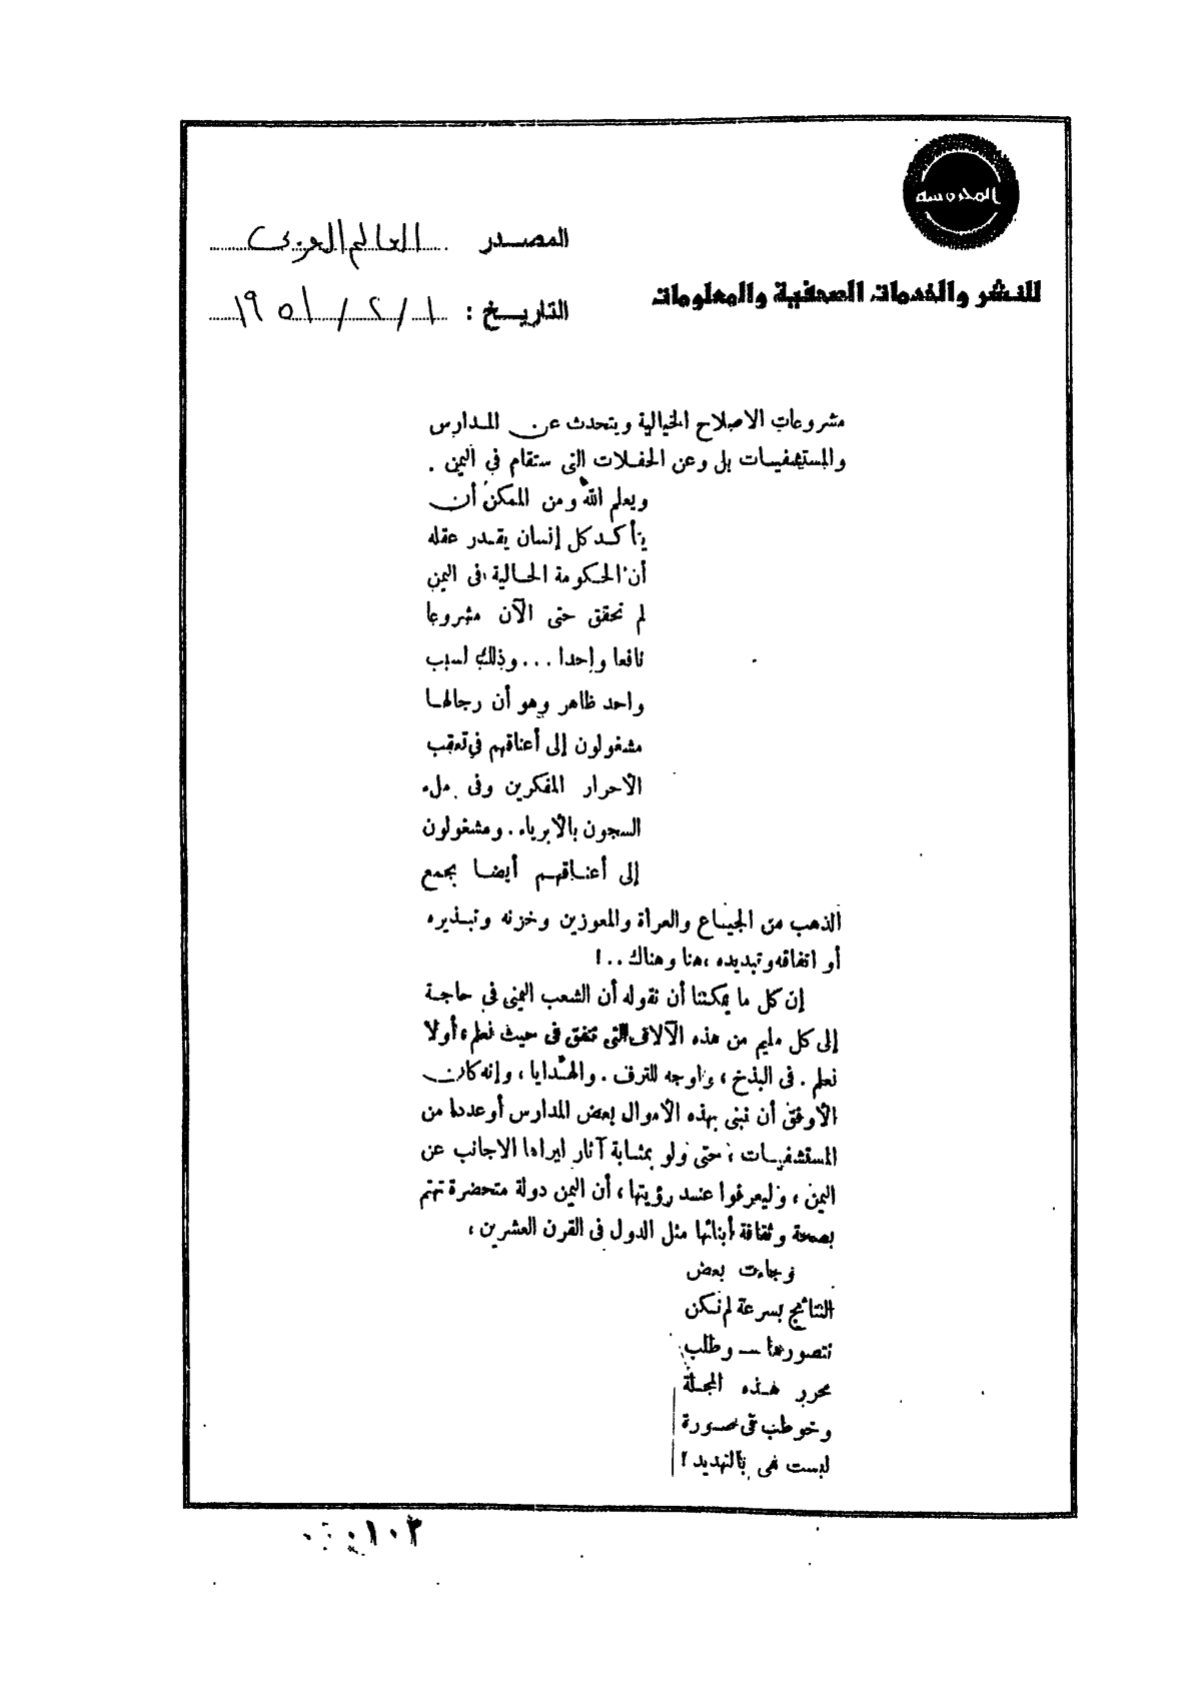 المحروسه
للنشر والخدمات الصحفية والمعلومات
المصدر العالم العربى
التاريخ : ١ / ٢ / ١٩٥١
مشروعات الاصلاح الخيالية ويتحدث عن المدارس
والمستشفيات بل وعن الحفلات التى ستقام في اليمن .
ويعلم الله ومن الممكن أن
يتأكد كل إنسان يقدر عقله
أن الحكومة الحالية فى اليمن
لم تحقق حتى الآن مشروعا
نافعا واحدا ... وذلك لسبب
واحد ظاهر وهو أن رجالها
مشغولون إلى أعناقهم في تعقب
الأحرار المفكرين وفى ملء
السجون بالأبرياء . ومشغولون
إلى أعناقهم أيضا بجمع
الذهب من الجياع والعراة والمعوزين وخزنه وتبذيره
أو اتفاقه وتبديده هنا وهناك .. !
إن كل ما يمكننا أن نقوله أن الشعب اليمنى في حاجة
إلى كل مليم من هذه الآلاف التى تنفق فى حيث نعلم ، أولا
نعلم . فى البذخ ، وأوجه للترف . والهدايا ، وإنه كان
الأوفق أن نبنى بهذه الأموال بعض المدارس أو عددا من
المستشفيات ، حتى ولو بمثابة آثار ايراها الاجانب عن
اليمن ، وليعرفوا عند رؤيتها ، أن اليمن دولة متحضرة تهتم
بصحة وثقافة أبنائها مثل الدول فى القرن العشرين ،
وجاءت بعض
النتائج بسرعة لم نكن
نتصورها — وطلب
محرر هذه المجلة
وخوطب فى صورة
ليست هى بالتهديد !
٠٠٠١٠٣